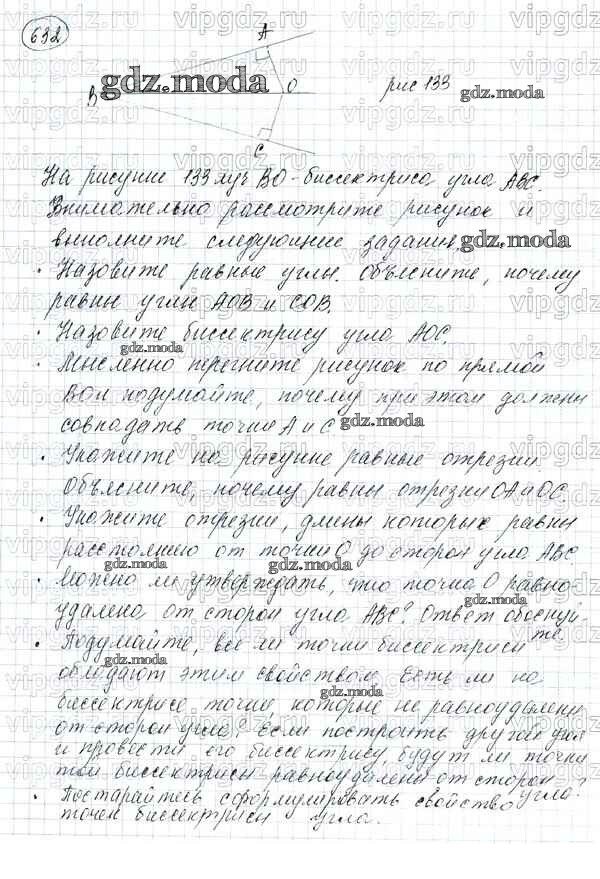 632
A
B
O
C
рис 133
gdz.moda
gdz.moda
На рисунке 133 луч BO - биссектриса угла ABC.
Внимательно рассмотрите рисунок и
выполните следующие задания.
gdz.moda
• Назовите равные углы. Объясните, почему
равны углы AOB и COB.
• Назовите биссектрису угла AOC.
gdz.moda
• Мысленно перегните рисунок по прямой
BO и подумайте, почему при этом должны
совпадать точки A и C.
gdz.moda
• Укажите на рисунке равные отрезки.
Объясните, почему равны отрезки OA и OC.
gdz.moda
• Укажите отрезки, длины которых равны
расстоянию от точки O до сторон угла ABC.
gdz.moda
• Можно ли утверждать, что точка O равно-
удалена от сторон угла ABC? Ответ обоснуй-
те.
gdz.moda
gdz.moda
• Подумайте, все ли точки биссектрисы
обладают этим свойством. Есть ли на
gdz.moda
gdz.moda
биссектрисе точки, которые не равноудалены
от сторон угла? Если построить другой угол
и провести его биссектрису, будут ли точки
той биссектрисы равноудалены от сторон
угла?
gdz.moda
• Постарайтесь сформулировать свойство
точек биссектрисы угла.